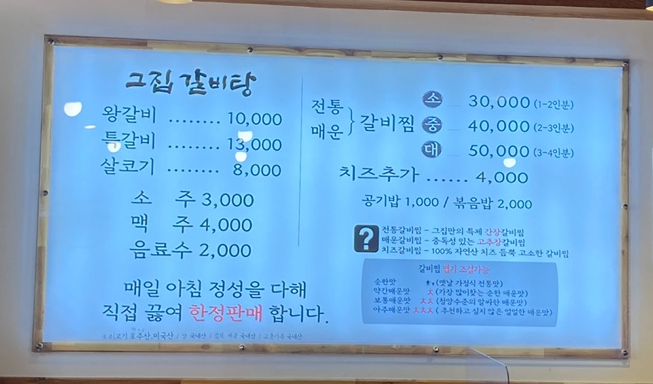 그집 갈비탕
왕갈비 ........ 10,000
특갈비 ........ 13,000
살코기 ........ 8,000
소 주 3,000
맥 주 4,000
음료수 2,000
매일 아침 정성을 다해
직접 끓여 한정판매 합니다.
전통
매운
갈비찜
소 ... 30,000 (1-2인분)
중 ... 40,000 (2-3인분)
대 ... 50,000 (3-4인분)
치즈추가 ...... 4,000
공기밥 1,000 / 볶음밥 2,000
?
전통갈비찜 - 그집만의 특제 간장갈비찜
매운갈비찜 - 중독성 있는 고추장갈비찜
치즈갈비찜 - 100% 자연산 치즈 듬뿍 고소한 갈비찜
갈비찜 맵기 조절가능
순한맛 (옛날 가정식 전통맛)
약간매운맛 (가장 많이찾는 순한 매운맛)
보통매운맛 (청양수준의 알싸한 매운맛)
아주매운맛 (추천하고 싶지 않은 얼얼한 매운맛)